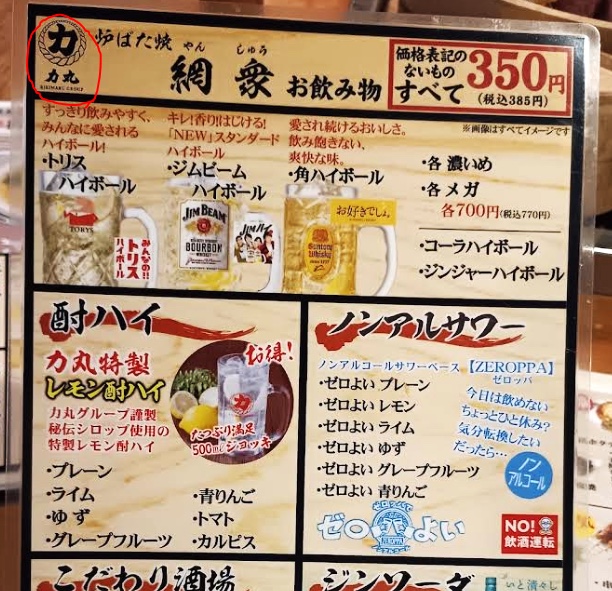 力
力丸
RIKIMARU GROUP
炉ばた焼
やん しゅう
網衆 お飲み物
価格表記の
ないもの
すべて
350円
(税込385円)
※画像はすべてイメージです
すっきり飲みやすく、
みんなに愛される
ハイボール!
・トリス
ハイボール
TORYS
みんなの!!
トリス
ハイボール
キレ!香り!はじける!
「NEW」スタンダード
ハイボール
・ジムビーム
ハイボール
JIM BEAM
BOURBON
ジムハイ
愛され続けるおいしさ。
飲み飽きない、
爽快な味。
・角ハイボール
お好きでしょ。
Suntory
Whisky
・各 濃いめ
・各 メガ
各700円(税込770円)
・コーラハイボール
・ジンジャーハイボール
酎ハイ
力丸特製
レモン酎ハイ
お得!
力丸グループ謹製
秘伝シロップ使用の
特製レモン酎ハイ
力
たっぷり満足
500mlジョッキ
・プレーン
・ライム
・ゆず
・グレープフルーツ
・青りんご
・トマト
・カルピス
ノンアルサワー
ノンアルコールサワーベース【ZEROPPA】
ゼロッパ
・ゼロよい プレーン
・ゼロよい レモン
・ゼロよい ライム
・ゼロよい ゆず
・ゼロよい グレープフルーツ
・ゼロよい 青りんご
今日は飲めない
ちょっとひと休み?
気分転換したい
だったら…
ノン
アルコール
ゼロ よい
NO!
飲酒運転
こだわり酒場
ジンソーダ